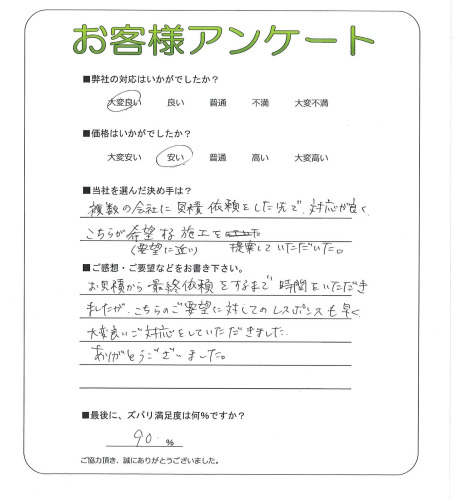 お客様アンケート
■弊社の対応はいかがでしたか?
大変良い 良い 普通 不満 大変不満
■価格はいかがでしたか?
大変安い 安い 普通 高い 大変高い
■当社を選んだ決め手は?
複数の会社に見積依頼をした先で、対応が良く、
こちらが希望する施工を
(要望に近い) 提案していただいた。
■ご感想・ご要望などをお書き下さい。
お見積から最終依頼をするまで時間をいただき
ましたが、こちらのご要望に対してのレスポンスも早く
大変良いご対応をしていただきました。
ありがとうございました。
■最後に、ズバリ満足度は何%ですか?
90 %
ご協力頂き、誠にありがとうございました。